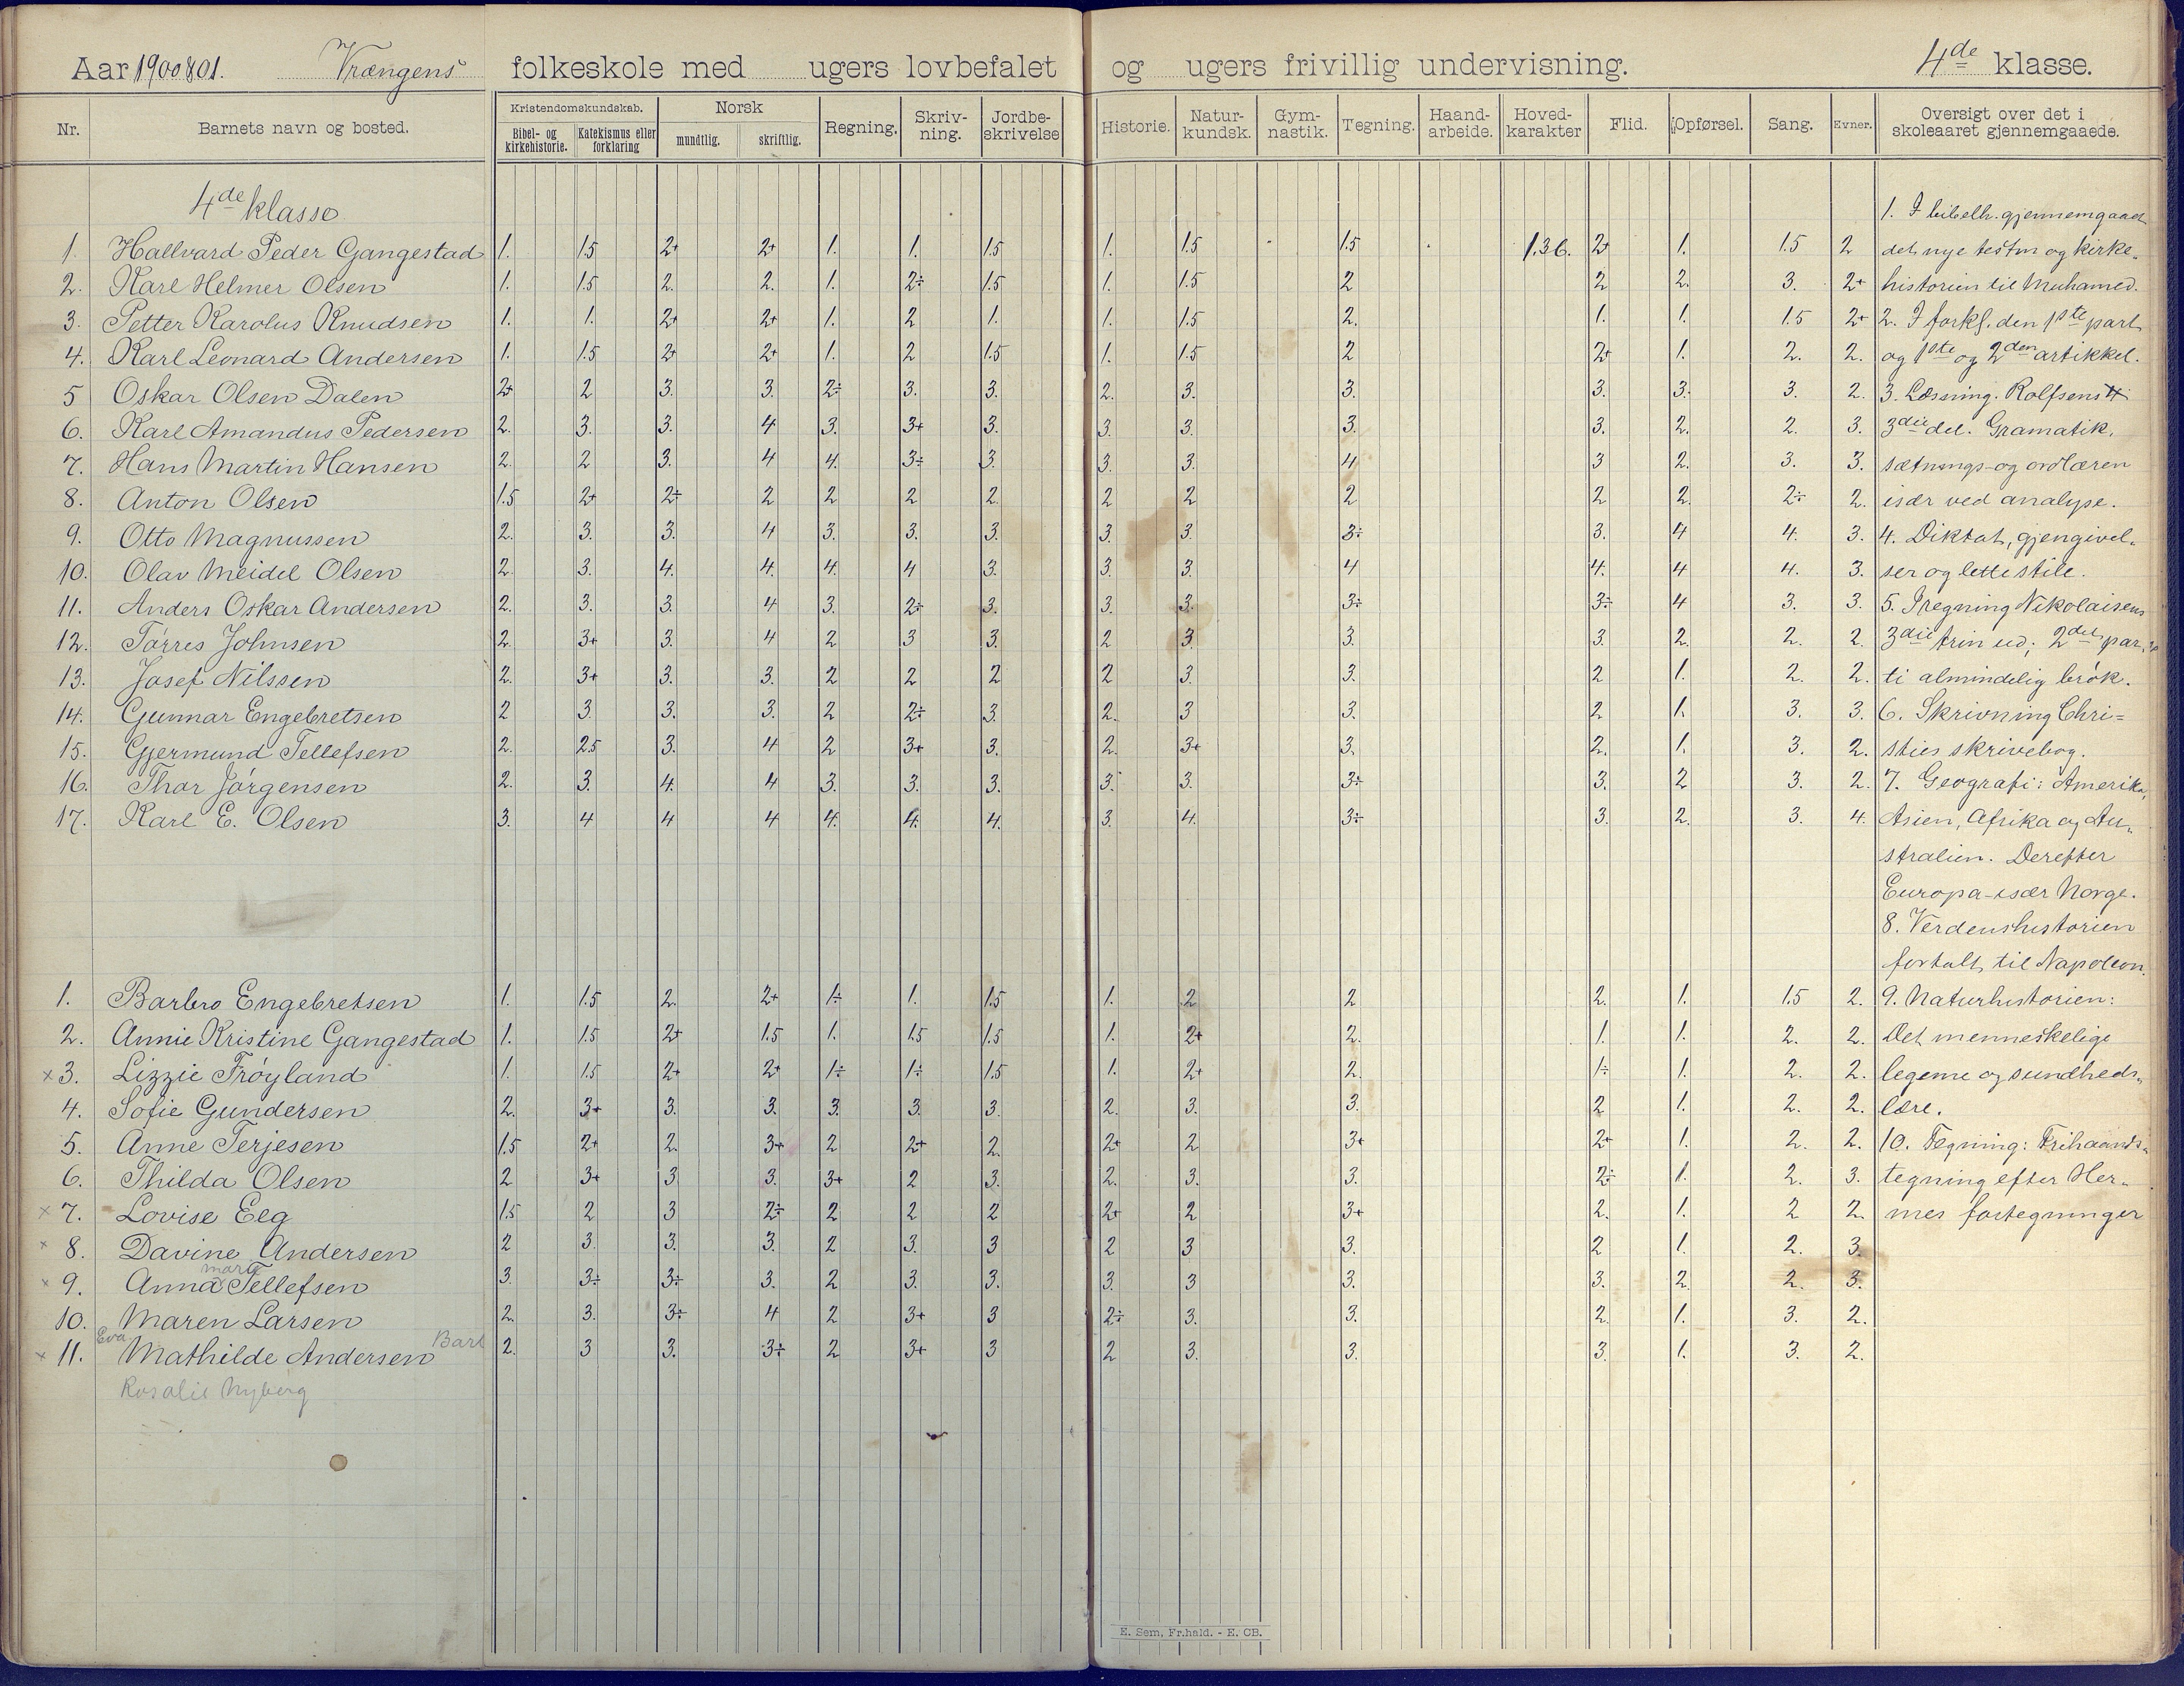 Aar 1900 & 01. Vrængens folkeskole med ugers lovbefalet og ugers frivillig undervisning. 4de klasse.
Nr. Barnets navn og bosted. Kristendomskundskab. Bibel- og kirkehistorie. Katekismus eller forklaring Norsk mundtlig. skriftlig. Regning. Skriv-ning. Jordbe-skrivelse Historie. Natur-kundsk. Gym-nastik. Tegning. Haand-arbeide. Hoved-karakter Flid. Opførsel. Sang. Evner. Oversigt over det i skoleaaret gjennemgaaede.
4de klasse 1. I bibelh. gjennemgaaet
1. Hallvard Peder Gangestad 1. 1.5 2+ 2+ 1. 1. 1.5 1. 1.5 1.5 1.36. 2+ 1. 1.5 2 det nye testm og kirke-
2. Karl Helmer Olsen 1. 1.5 2. 2. 1. 2÷ 1.5 1. 1.5 2 2 2. 3. 2+ historien til Muhamed.
3. Petter Karolus Knudsen 1. 1. 2+ 2+ 1. 2 1. 1. 1.5 2. 1. 1. 1.5 2+ 2. I forkl. den 1ste part
4. Karl Leonard Andersen 1. 1.5 2+ 2+ 1. 2 1.5 1. 1.5 2 2+ 1. 2. 2. og 1ste og 2den artikkel.
5 Oskar Olsen Dalen 2+ 2 3. 3. 2÷ 3. 3. 2. 3. 3. 3. 3. 3. 2. 3. Læsning. Rolfsens
6. Karl Amandus Pedersen 2. 3. 3. 4 3. 3+ 3. 3. 3. 3. 3. 2. 2. 3. 3die del. Gramatik,
7. Hans Martin Hansen 2. 2 3. 4 4. 3÷ 3. 3. 3. 4 3 2. 3. 3. sætnings- og ordlæren
8. Anton Olsen 1.5 2+ 2÷ 2 2 2 2. 2 2 2 2 2. 2÷ 2. især ved analyse.
9. Otto Magnussen 2. 3. 3. 4 3. 3. 3. 3. 3. 3÷ 3. 4 4. 3. 4. Diktat, gjengivel-
10. Olav Meidel Olsen 2. 3. 4. 4. 4. 4 3. 3. 3. 4 4. 4 4. 3. ser og lette stile.
11. Anders Oskar Andersen 2. 3. 3. 4 3. 2÷ 3. 3. 3. 3÷ 3÷ 4 3. 3. 5. I regning Nikolaisens
12. Tørres Johnsen 2. 3+ 3. 4 2 3 3. 2 3. 3. 3. 2. 2. 2. 3die trin ud; 2det par-
13. Josef Nilssen 2. 3+ 3. 3. 2 2 2 2 3. 3. 2 1. 2. 2. ti almindelig brøk.
14. Gunnar Engebretsen 2 3 3. 3. 2 2÷ 3. 2. 3 3. 2 1. 3. 3. 6. Skrivning Chri=
15. Gjermund Tellefsen 2. 2.5 3. 4 2 3+ 3. 2. 3+ 3. 2. 1. 3. 2. sties skrivebog.
16. Thor Jørgensen 2. 3. 4. 4 3. 3. 3. 3. 3. 3÷ 3. 2 3. 2. 7. Geografi: Amerika,
17. Karl E. Olsen 3. 4 4 4 4. 4. 4. 3. 4. 3÷ 3. 2. 3. 4. Asien, Afrika og Au-
stralien. Derefter
Europa - især Norge.
8. Verdenshistorien
fortalt til Napoleon.
1. Barbro Engebretsen 1. 1.5 2. 2+ 1÷ 1. 1.5 1. 2 2 2. 1. 1.5 2. 9. Naturhistorien:
2. Annie Kristine Gangestad 1. 1.5 2+ 1.5 1. 1.5 1.5 1. 2+ 2. 1. 1. 2. 2. Det menneskelige
x 3. Lizzie Frøyland 1. 1.5 2+ 2+ 1÷ 1÷ 1.5 1. 2+ 2. 1÷ 1. 2. 2. legeme og sundheds-
4. Sofie Gundersen 2. 3+ 3. 3. 3. 3. 3. 2. 3. 3. 2 1. 2. 2. lære.
5. Anne Terjesen 1.5 2+ 2. 3+ 2 2+ 2. 2+ 2 3+ 2+ 1. 2. 2. 10. Tegning: Frihaands-
6. Thilda Olsen 2 3+ 3 3. 3+ 2 3. 2. 3. 3. 2÷ 1. 2. 3. tegning efter Her-
x 7. Lovise Eeg 1.5 2 3 2÷ 2 2 2 2+ 2 3+ 2. 1. 2 2. mes fortegninger
x 8. Davine Andersen 2 3. 3. 3. 2 3. 3 2 3 3. 2 1. 2. 3.
marie
x 9. Anna Tellefsen 3. 3÷ 3÷ 3. 2 3. 3. 3. 3 3. 3. 2. 2. 3.
10. Maren Larsen 2. 3. 3÷ 4 2 3+ 3 2÷ 3. 3. 2. 1. 3. 2.
Eva Barl
x 11. Mathilde Andersen 2. 3 3. 3÷ 2 3+ 3 2 3. 3. 3. 1. 3. 2.
Rosalie Nyberg
E. Sem, Fr.hald. - E. CB.